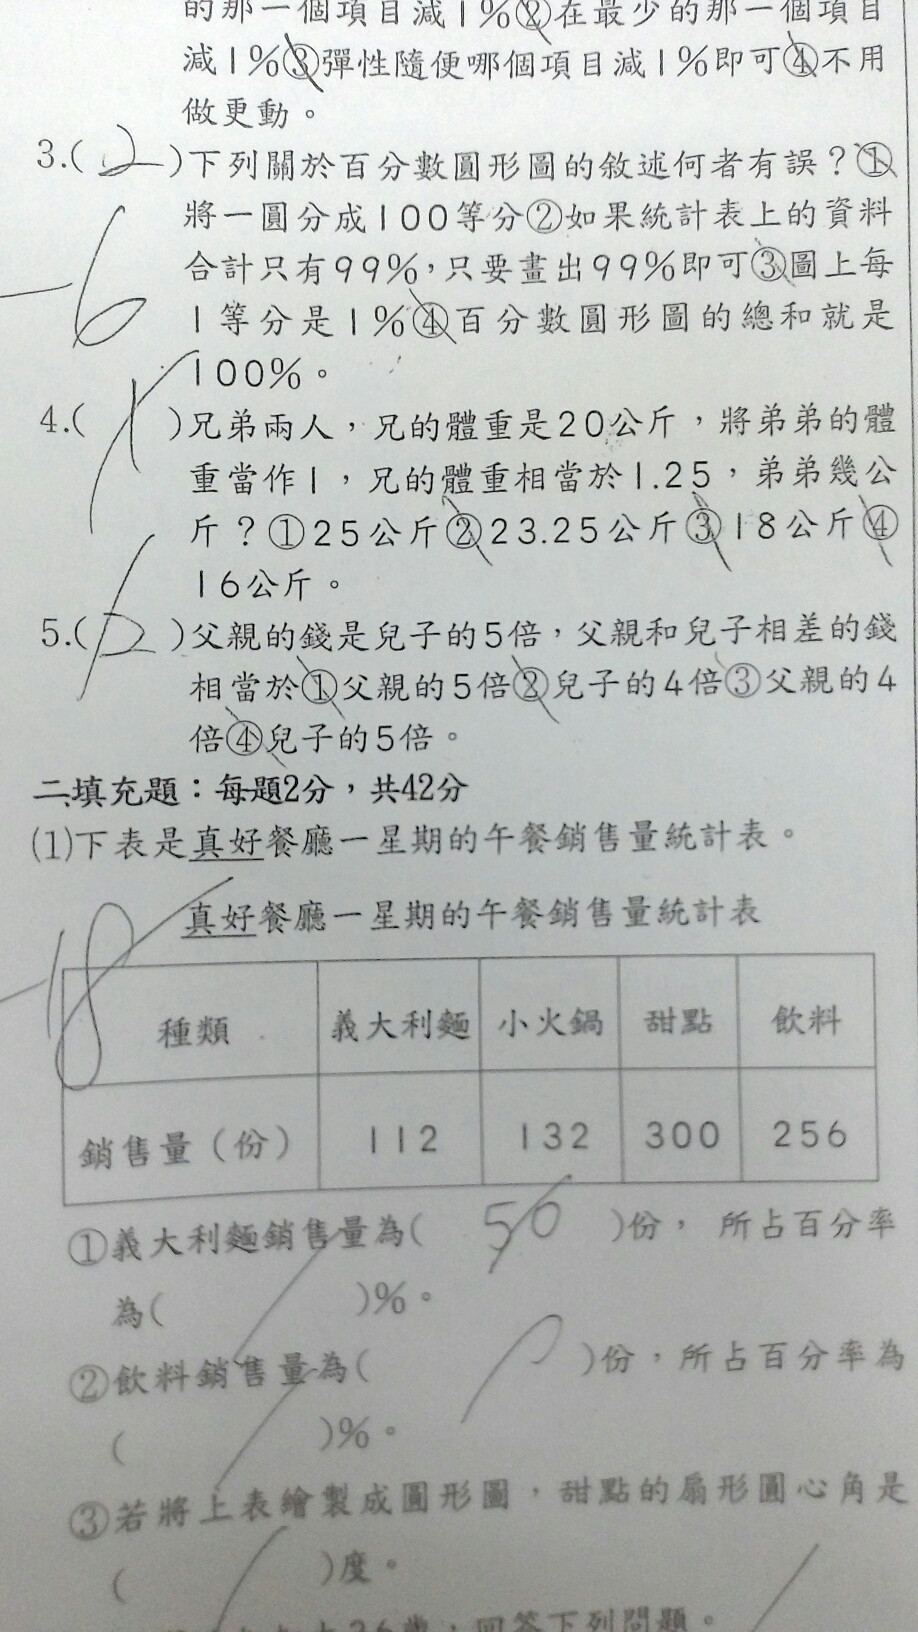 的那一個項目減1%②在最少的那一個項目
減1%③彈性隨便哪個項目減1%即可④不用
做更動。
3.( 2 )下列關於百分數圓形圖的敘述何者有誤？①
將一圓分成100等分②如果統計表上的資料
合計只有99%，只要畫出99%即可③圖上每
-6
1等分是1%④百分數圓形圖的總和就是
100%。
4.( 1 )兄弟兩人，兄的體重是20公斤，將弟弟的體
重當作1，兄的體重相當於1.25，弟弟幾公
斤？①25公斤②23.25公斤③18公斤④
16公斤。
5.( 2 )父親的錢是兒子的5倍，父親和兒子相差的錢
相當於①父親的5倍②兒子的4倍③父親的4
倍④兒子的5倍。
二、填充題：每題2分，共42分
(1)下表是真好餐廳一星期的午餐銷售量統計表。
真好餐廳一星期的午餐銷售量統計表
-18
種類 義大利麵 小火鍋 甜點 飲料
銷售量（份） 112 132 300 256
①義大利麵銷售量為( 56 )份， 所占百分率
為( )%。
②飲料銷售量為( )份，所占百分率為
( )%。
③若將上表繪製成圓形圖，甜點的扇形圓心角是
( )度。
36歲，回答下列問題。